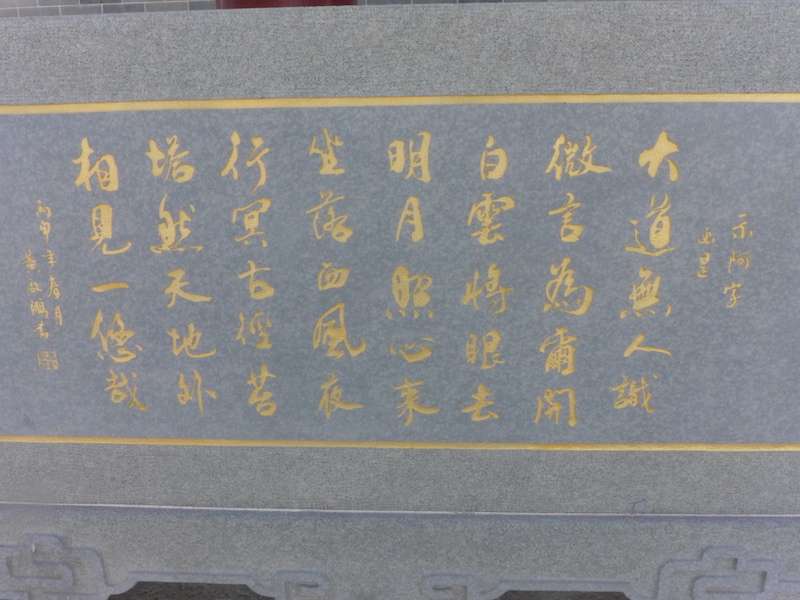 示阿字
大道無人識
微言為爾開
白雲將眼去
明月照心來
坐落西風夜
行冥古徑苔
塔然天地外
相見一悠哉
丙申年春月